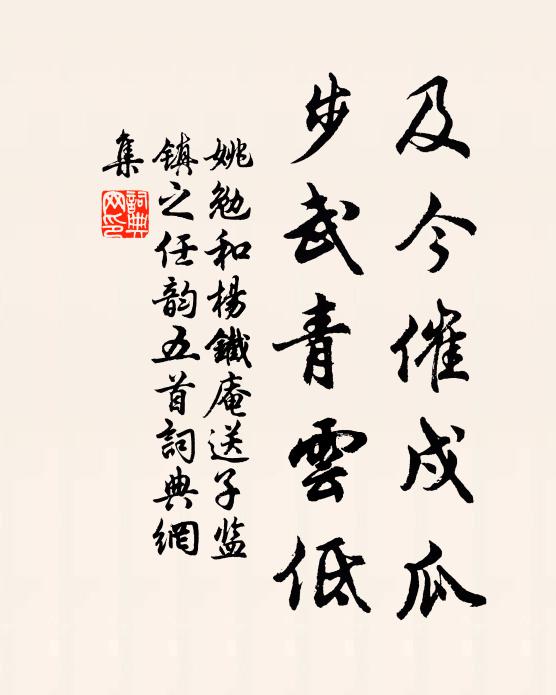 及今催戍瓜
步武青雲低
姚勉和楊鐵庵送子监
鎮之任韵五首詞典網
集
詞典
网印